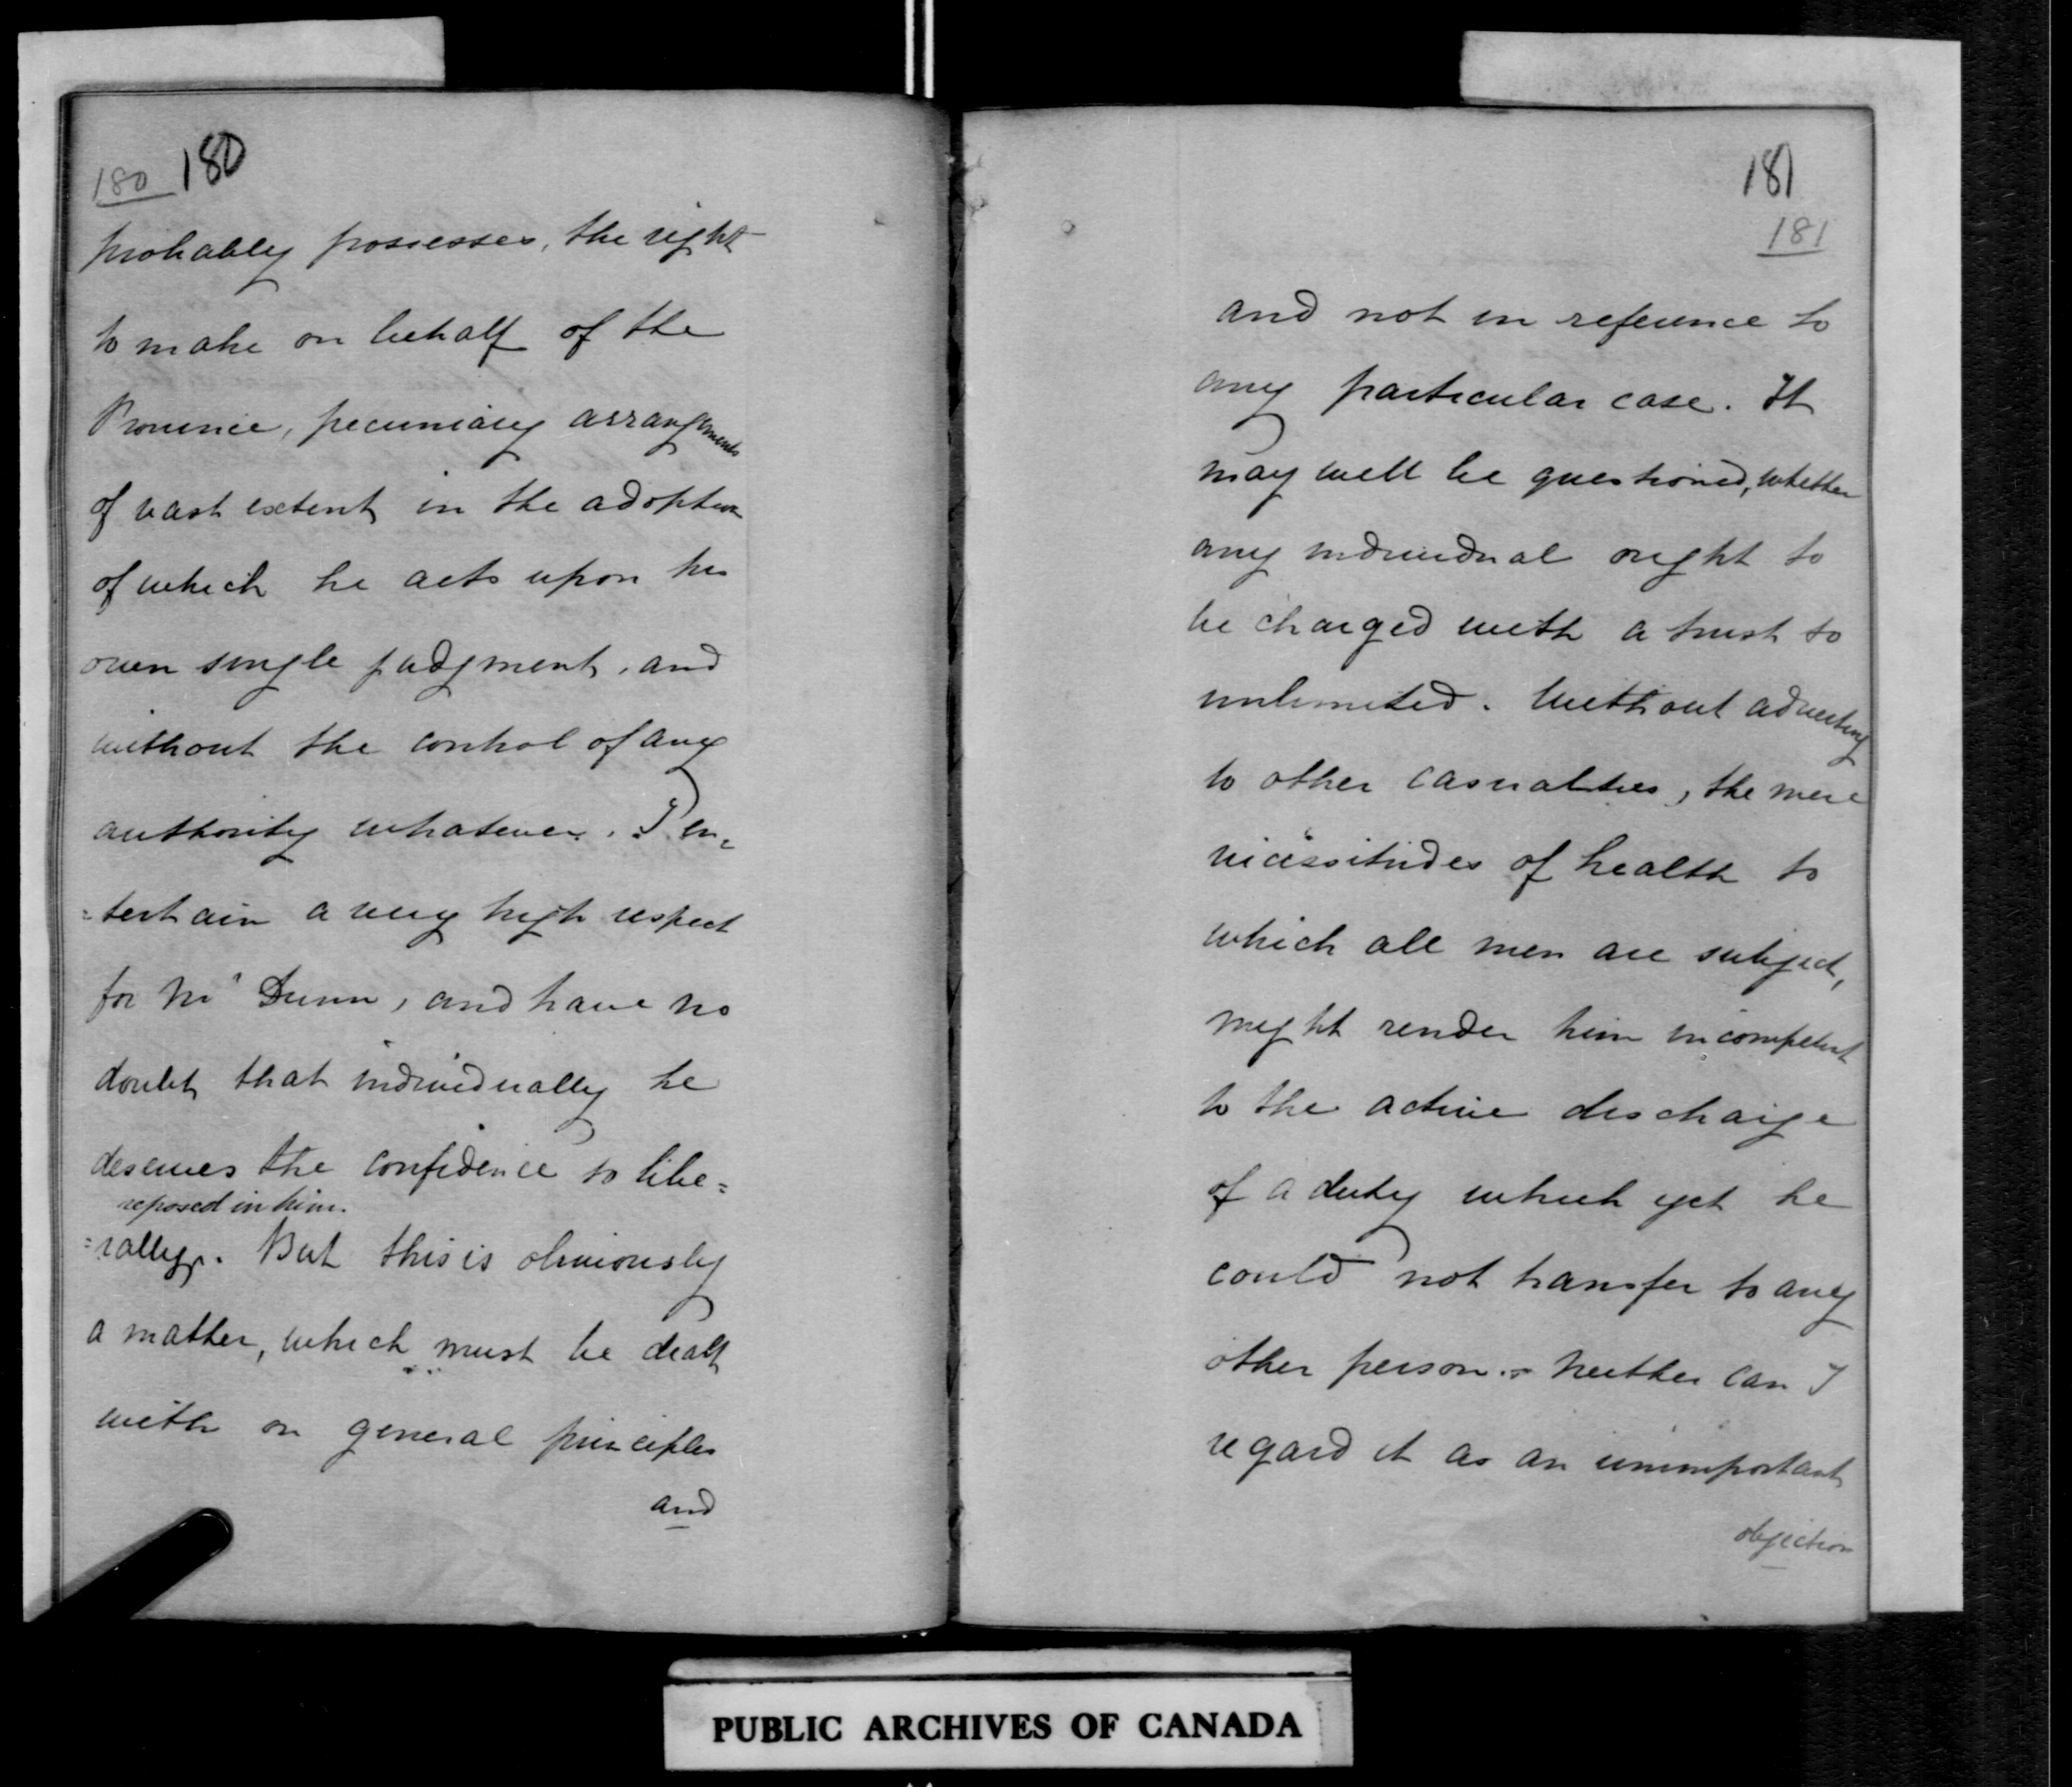 180 180
probably possesses, the right
to make on behalf of the
Province, pecuniary arrangements
of vast extent, in the adoption
of which he acts upon his
own single judgment, and
without the control of any
authority whatever. I en=
=tertain a very high respect
for Mr Dunn, and have no
doubt, that individually he
deserves the confidence so libe=
reposed in him.
=rally. But this is obviously
a matter, which must be dealt
with on general principles
and
181
181
and not in reference to
any particular case. It
may well be questioned, whether
any individual ought to
be charged with a trust so
unlimited. Without adverting
to other casualties, the mere
vicissitudes of health to
which all men are subject,
might render him incompetent
to the active discharge
of a duty which yet he
could not transfer to any
other person. Neither can I
regard it as an unimportant
objection
PUBLIC ARCHIVES OF CANADA